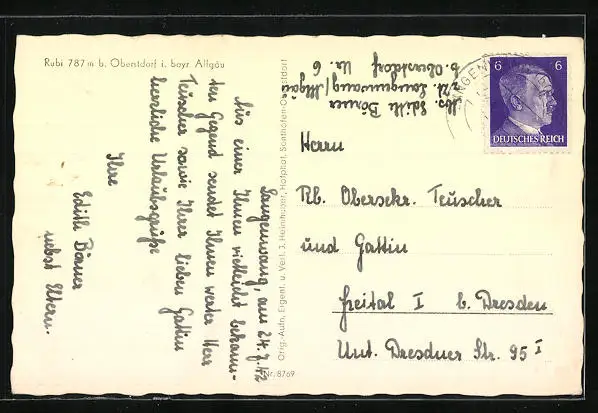 Rubi 787 m b. Oberstdorf i. bayr. Allgäu
Langenwang, am 24.8.42
Aus einer Ihnen vielleicht bekann-
ten Gegend sendet Ihnen werter Herr
Teuscher sowie Ihrer lieben Gattin
herzliche Urlaubsgrüße
Ihre
Edith Börner
nebst Eltern.
Orig.-Aufn., Eigent. u. Verl. J. Heimhuber, Hofphot. Sonthofen-Oberstdorf
Nr. 8769
Abs. Edith Börner
z. Zt. Langenwang/Allgäu
b. Oberstdorf
Nr. 6
LANGENWANG
6 6
DEUTSCHES REICH
Herrn
Rb. Obersekr. Teuscher
und Gattin
Freital I b. Dresden
Unt. Dresdner Str. 95 I